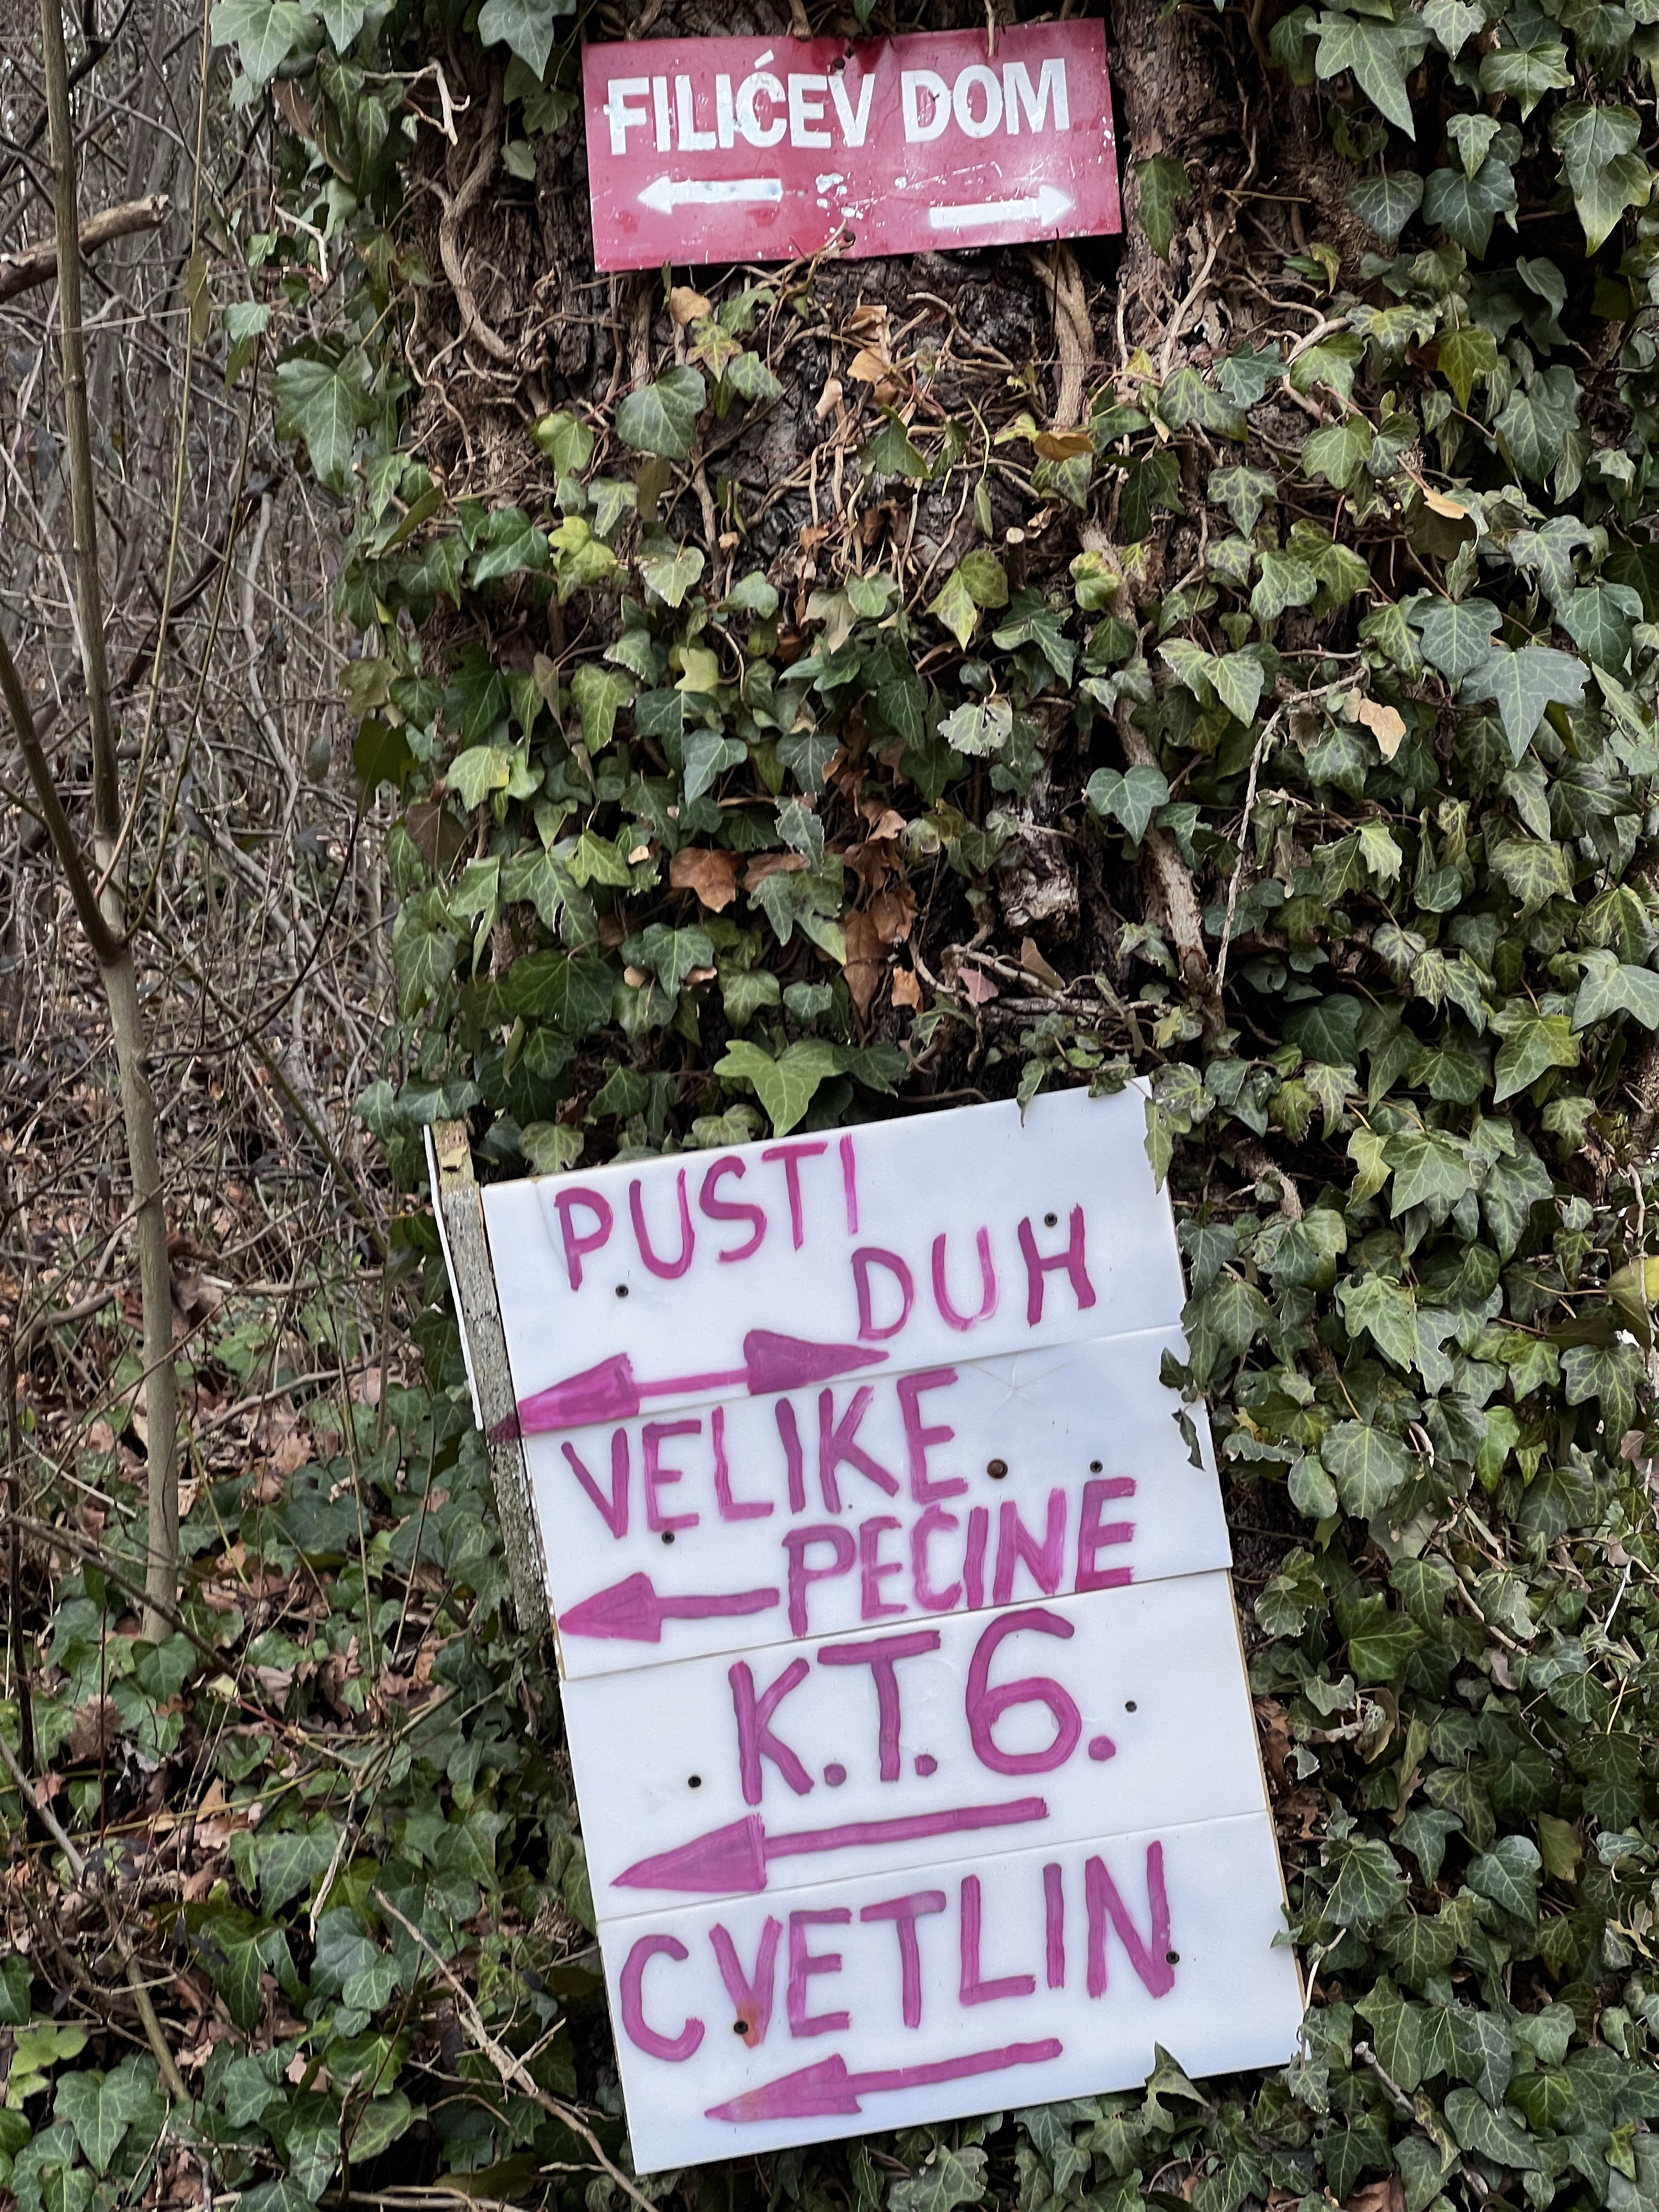 FILIĆEV DOM
PUSTI
DUH
VELIKE
PEĆINE
K.T.6.
CVETLIN